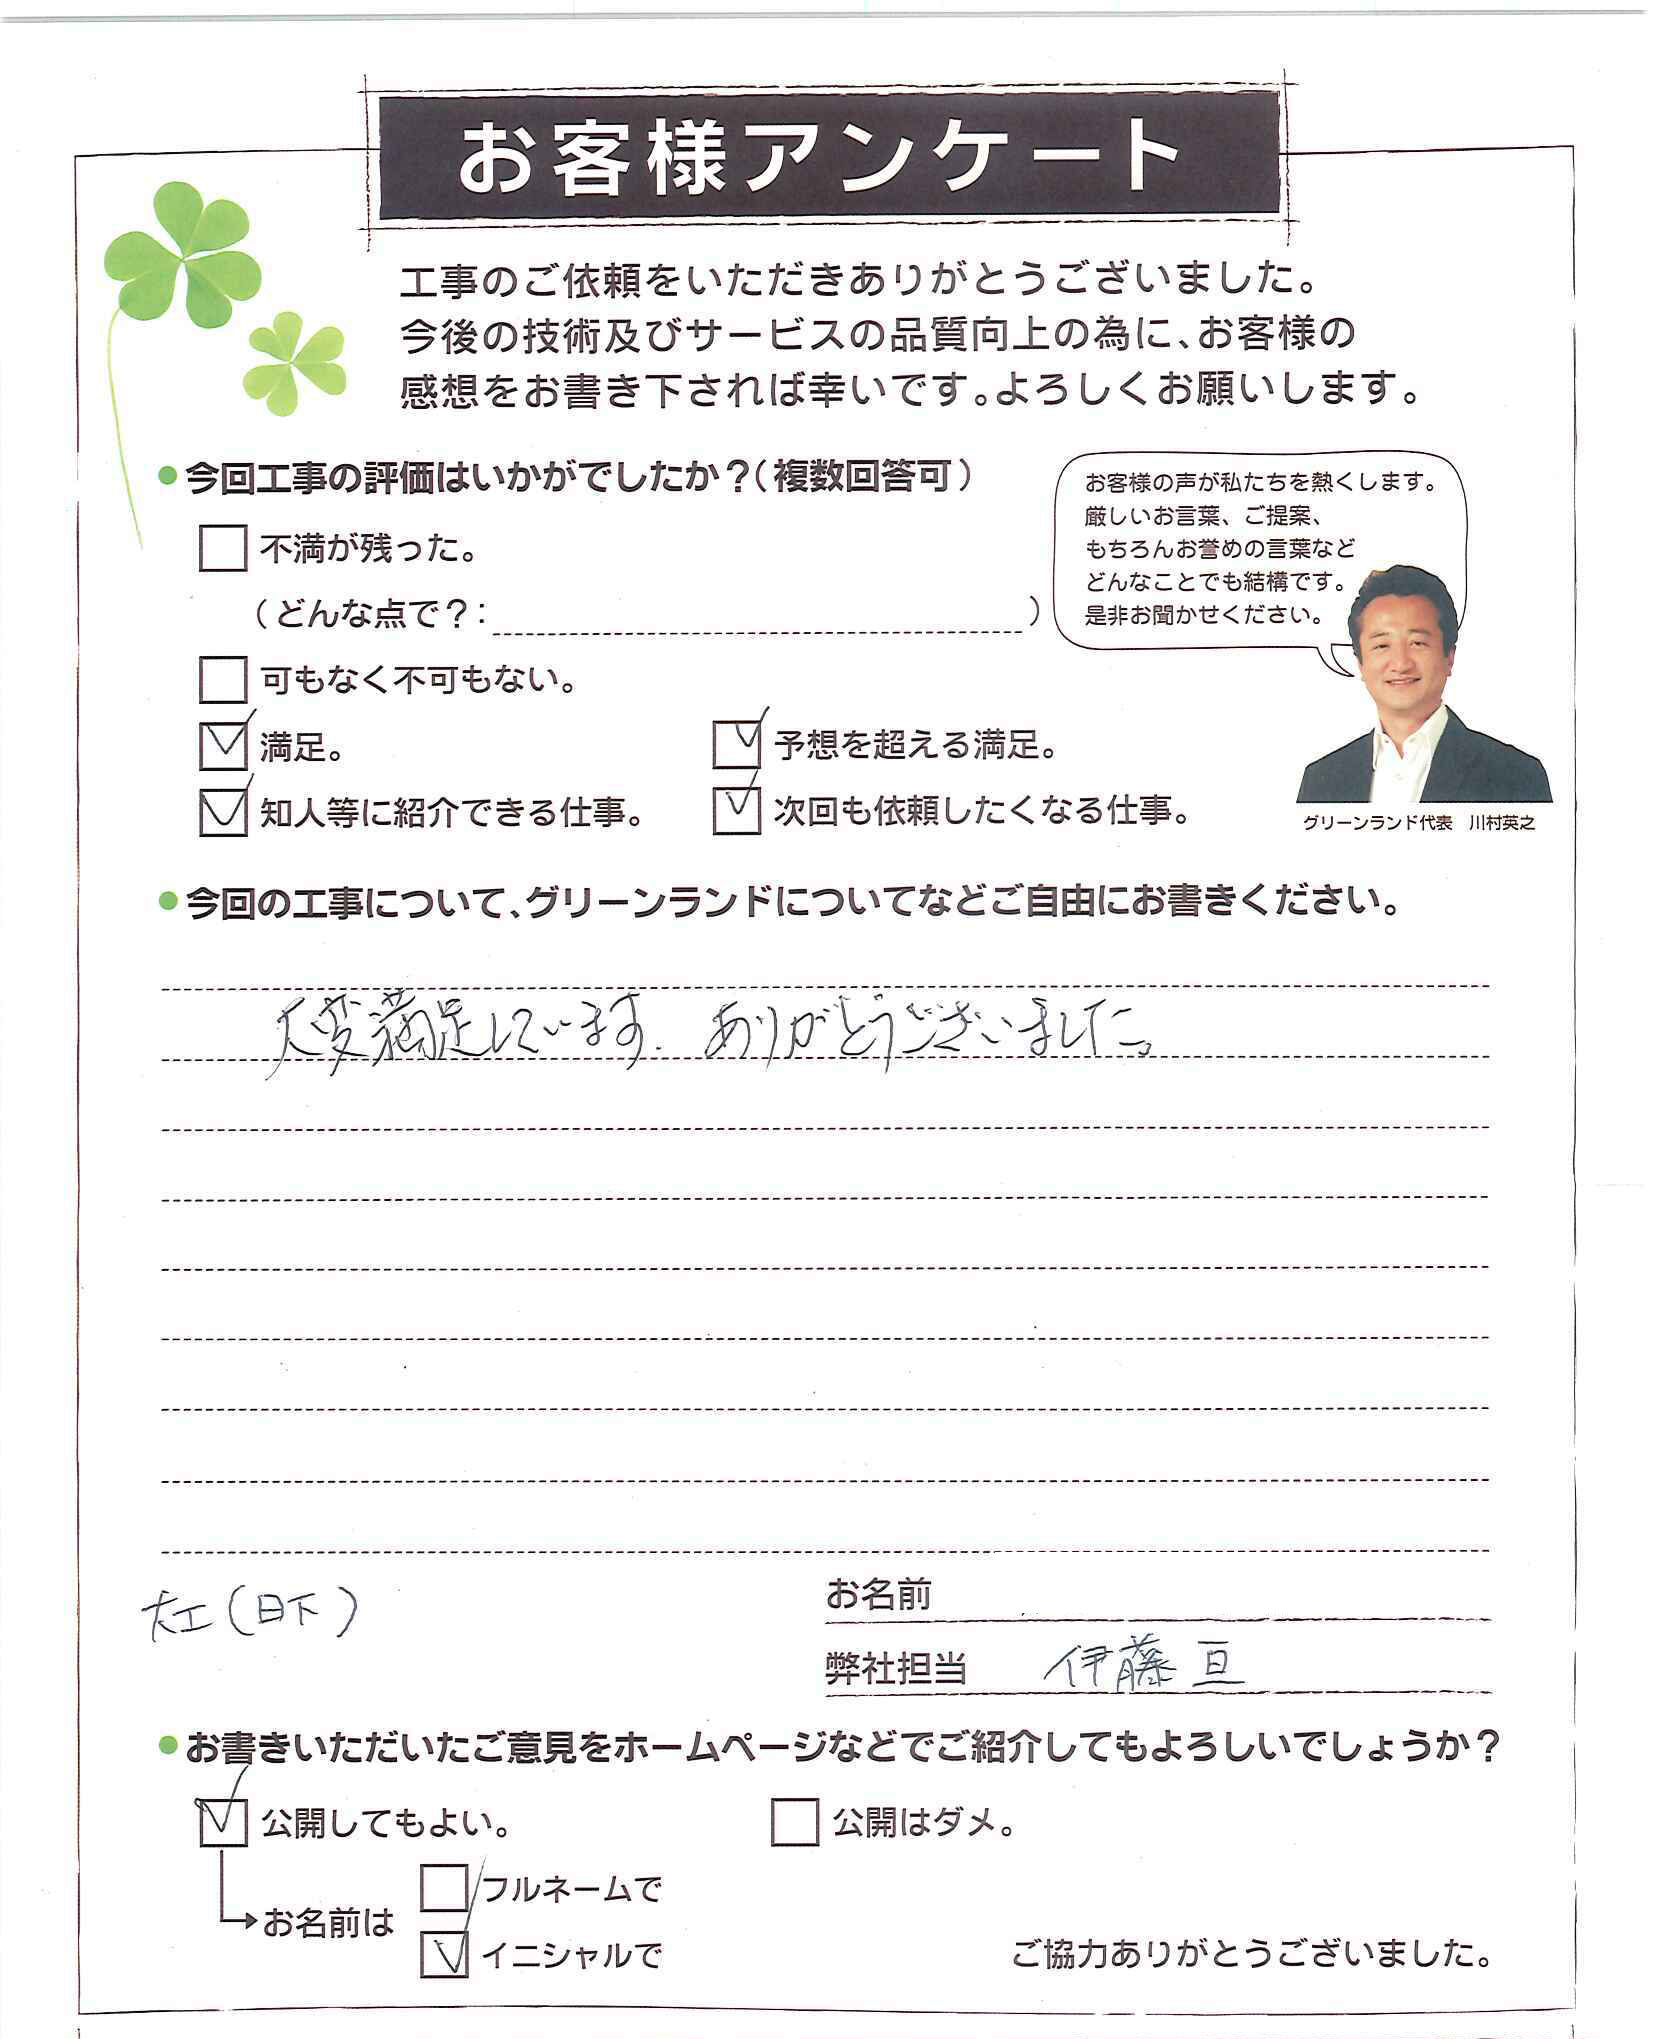 お客様アンケート
工事のご依頼をいただきありがとうございました。
今後の技術及びサービスの品質向上の為に、お客様の
感想をお書き下されば幸いです。よろしくお願いします。
●今回工事の評価はいかがでしたか？(複数回答可)
不満が残った。
(どんな点で？: )
可もなく不可もない。
満足。
予想を超える満足。
知人等に紹介できる仕事。
次回も依頼したくなる仕事。
お客様の声が私たちを熱くします。
厳しいお言葉、ご提案、
もちろんお誉めの言葉など
どんなことでも結構です。
是非お聞かせください。
グリーンランド代表 川村英之
●今回の工事について、グリーンランドについてなどご自由にお書きください。
大変満足しています。ありがとうございました。
大工(日下)
お名前
弊社担当 伊藤 亘
●お書きいただいたご意見をホームページなどでご紹介してもよろしいでしょうか？
公開してもよい。
公開はダメ。
お名前は
フルネームで
イニシャルで
ご協力ありがとうございました。